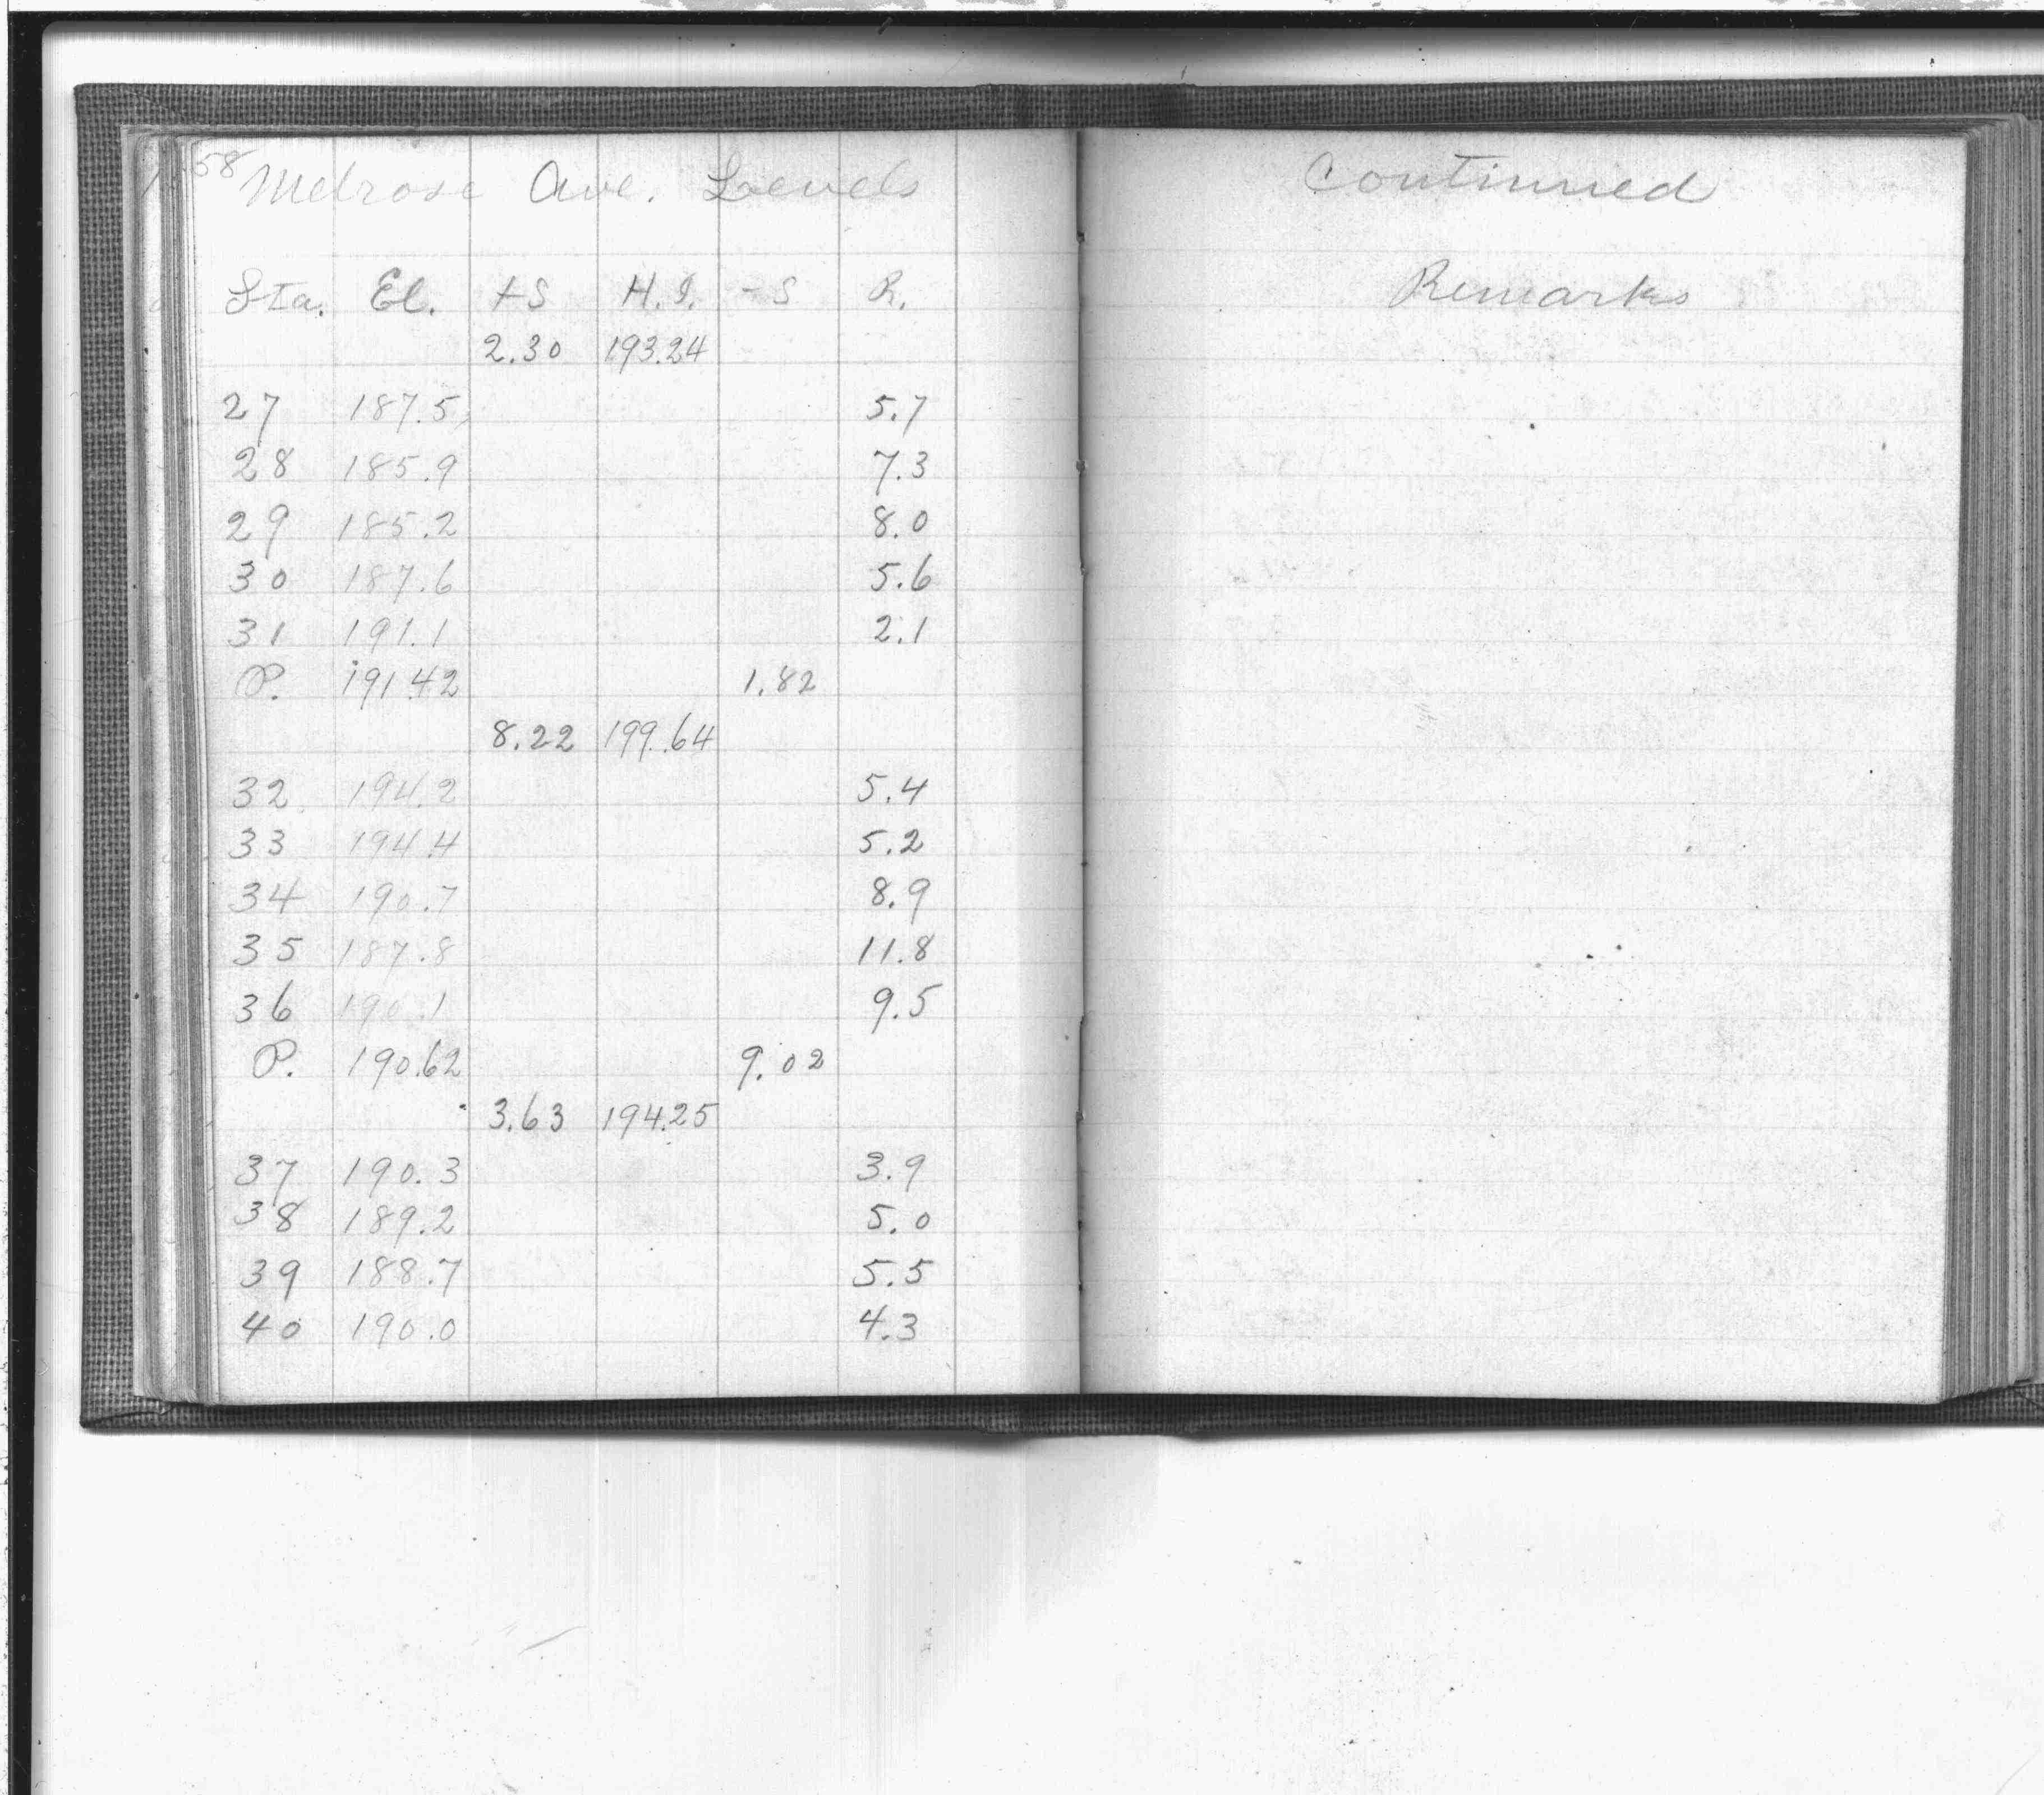 58 Melrose Ave. Levels
Sta. El. +S H.I. -S R.
2.30 193.24
27 187.5 5.7
28 185.9 7.3
29 185.2 8.0
30 187.6 5.6
31 191.1 2.1
P. 191.42 1.82
8.22 199.64
32 194.2 5.4
33 194.4 5.2
34 190.7 8.9
35 187.8 11.8
36 190.1 9.5
P. 190.62 9.02
3.63 194.25
37 190.3 3.9
38 189.2 5.0
39 188.7 5.5
40 190.0 4.3
Continued
Remarks